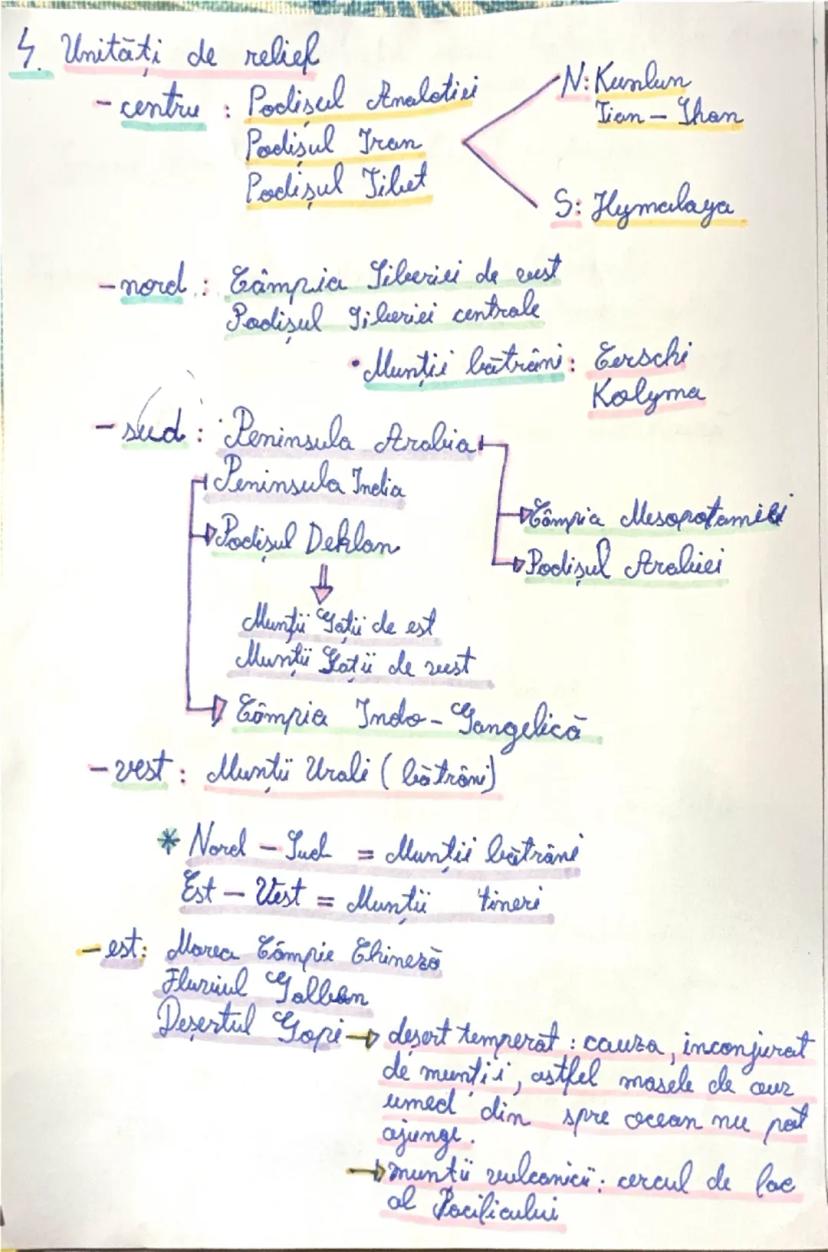 4. Unități de relief
- centru : Podișul Anatoliei
Podișul Iran
Podișul Tibet
N: Kunlun
Tian - Shan
S: Hymalaya
- nord : Câmpia Siberiei de vest
Podișul Siberiei centrale
• Munții bătrâni: Cerschi
Kolyma
- sud : Peninsula Arabia
Peninsula India
Câmpia Mesopotamiei
Podișul Dekkan
Podișul Arabiei
Munții Gații de est
Munții Gații de vest
Câmpia Indo-Gangelică
- vest : Munții Urali (bătrâni)
* Nord - Sud = Munții bătrâni
Est - Vest = Munții tineri
- est: Marea Câmpie Chineză
Fluviul Galben
Deșertul Gopi → deșert temperat : cauza, inconjurat
de munții, astfel masele de aer
umed din spre ocean nu pot
ajunge.
→ munții vulcanici: cercul de foc
al Pacificului